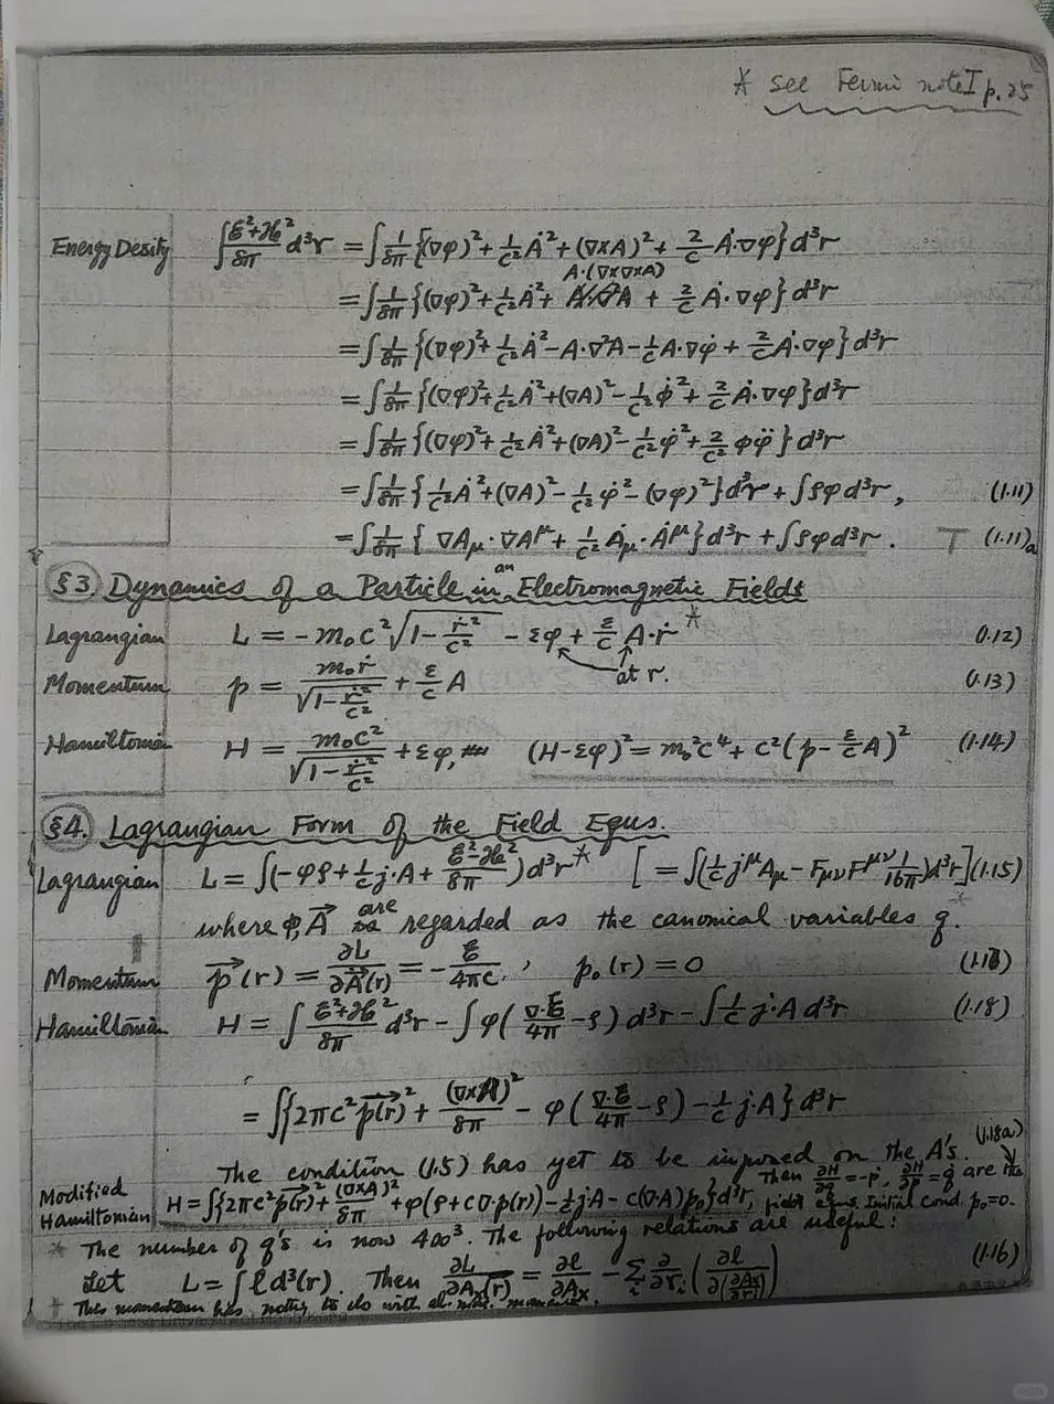 * see Fermi note I p. 25
Energy Desity ∫(ℰ²+ℋ²)/8π d³r = ∫1/8π {(∇φ)² + 1/c² Ȧ² + (∇×A)² + 2/c Ȧ·∇φ} d³r
A·(∇×∇×A)
= ∫1/8π {(∇φ)² + 1/c² Ȧ² + + 2/c Ȧ·∇φ} d³r
= ∫1/8π {(∇φ)² + 1/c² Ȧ² − A·∇²A − 1/c A·∇φ̇ + 2/c Ȧ·∇φ} d³r
= ∫1/8π {(∇φ)² + 1/c² Ȧ² + (∇A)² − 1/c² φ̇² + 2/c Ȧ·∇φ} d³r
= ∫1/8π {(∇φ)² + 1/c² Ȧ² + (∇A)² − 1/c² φ̇² + 2/c² φφ̈} d³r
= ∫1/8π {1/c² Ȧ² + (∇A)² − 1/c² φ̇² − (∇φ)²} d³r + ∫ρφ d³r, (1.11)
= ∫1/8π {∇A_μ·∇A^μ + 1/c² Ȧ_μ·Ȧ^μ} d³r + ∫ρφ d³r. T (1.11)a
§3. Dynamics of a Particle in an Electromagnetic Fields
Lagrangian L = −m₀c² √(1 − ṙ²/c²) − εφ + ε/c A·ṙ * (1.12)
at r.
Momentum p = m₀ṙ/√(1 − ṙ²/c²) + ε/c A (1.13)
Hamiltonian H = m₀c²/√(1 − ṙ²/c²) + εφ, (H − εφ)² = m₀²c⁴ + c²(p − ε/c A)² (1.14)
§4. Lagrangian Form of the Field Equs.
Lagrangian L = ∫(−φρ + 1/c j·A + (ℰ²−ℋ²)/8π) d³r * [ = ∫(1/c j^μ A_μ − F_μν F^μν 1/16π) d³r] (1.15)
where φ, A⃗ are regarded as the canonical variables q. *
Momentum p⃗(r) = ∂L/∂A⃗̇(r) = −ℰ/4πc, p₀(r) = 0
Hamiltonian H = ∫(ℰ²+ℋ²)/8π d³r − ∫φ(∇·ℰ/4π − ρ) d³r − ∫1/c j·A d³r (1.18)
= ∫{2πc² p⃗(r)² + (∇×A)²/8π − φ(∇·ℰ/4π − ρ) − 1/c j·A} d³r
The condition (1.5) has yet to be imposed on the A's. (1.18a)
Modified Hamiltonian H = ∫{2πc² p⃗(r)² + (∇×A)²/8π + φ(ρ + c∇·p(r)) − 1/c j·A − c(∇·A)p₀} d³r, Then ∂H/∂q = −ṗ, ∂H/∂p = q̇ are the field equs. Initial cond. p₀=0.
* The number of q's is now 4∞³. The following relations are useful:
Let L = ∫ℓ d³(r). Then ∂L/∂A_x(r) = ∂ℓ/∂A_x − Σ_i ∂/∂r_i (∂ℓ/∂(∂A_x/∂r_i)) (1.16)
† This momentum has nothing to do with